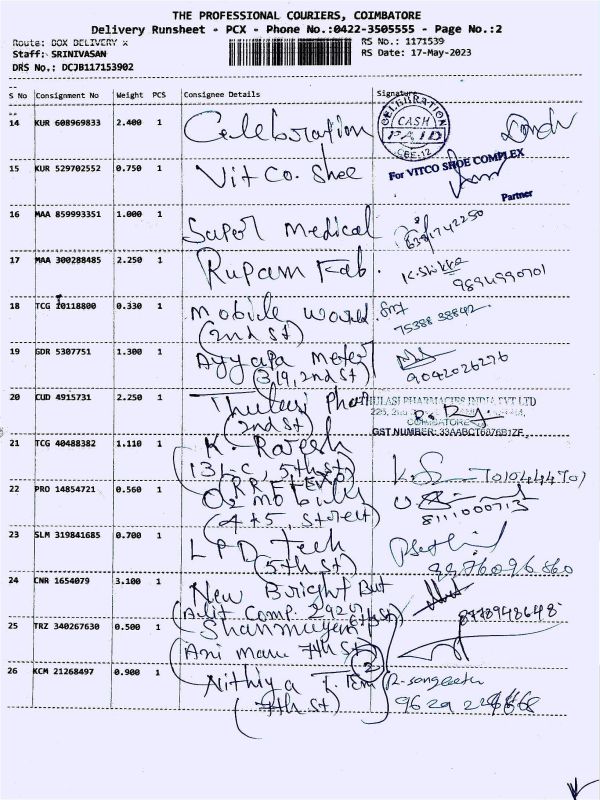 THE PROFESSIONAL COURIERS, COIMBATORE
Delivery Runsheet - PCX - Phone No.:0422-3505555 - Page No.:2
Route: BOX DELIVERY x
RS No.: 1171539
Staff: SRINIVASAN
RS Date: 17-May-2023
DRS No.: DCJB117153902
S No Consignment No Weight PCS Consignee Details Signature
14 KUR 608969833 2.400 1 Celebration
CELEBRATION CASH PAID CBE-12
15 KUR 529702552 0.750 1 Vit Co. Shoe
For VITCO SHOE COMPLEX
Partner
16 MAA 859993351 1.000 1 Super Medical
17 MAA 300288485 2.250 1 Rupam Fab.
9894990701
18 TCG 10118800 0.330 1 Mobile World
(2nd St)
75388 38842
19 GDR 5307751 1.300 1 Ayyapa Meter
(319, 2nd St)
9042026276
20 CUD 4915731 2.250 1 Thulasi Pham
(2nd St)
THULASI PHARMACIES INDIA PVT LTD
COIMBATORE
GST NUMBER: 33AABCT6876B1ZF
21 TCG 40488382 1.110 1 K. Rajesh
(131-C, 5th St)
22 PRO 14854721 0.560 1 O2 mobily
(4 + 5, Street)
8111000713
23 SLM 319841685 0.700 1 LPD Tech
(5th St)
24 CNR 1654079 3.100 1 New Bright But
8778948648
25 TRZ 340267630 0.500 1 Shanmugam
(Ani manu 7th St)
2
26 KCM 21268497 0.900 1 Nithiya
R-Sangeetha
(7th St)